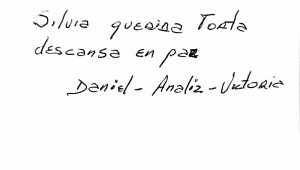 Silvia querida Tonta
descansa en paz
Daniel - Analiz - Victoria